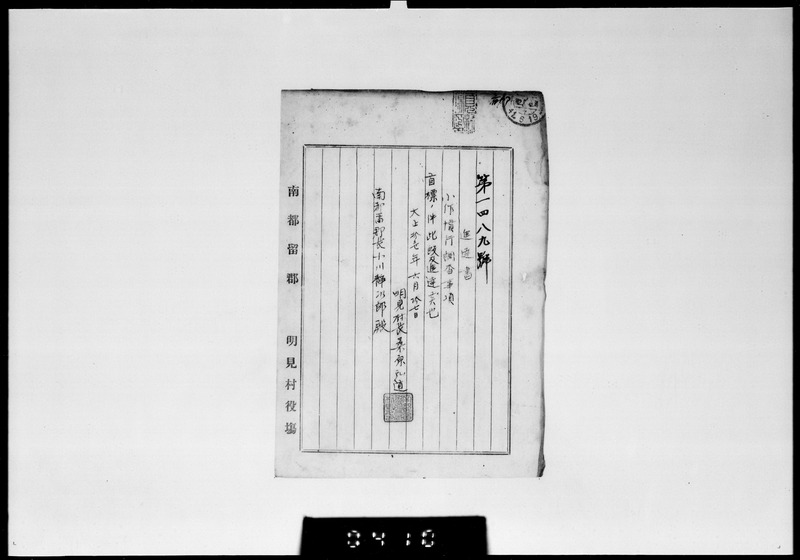 第一四八九號
進達書
小作慣行調查事項
首標ノ件此段及進達候也
大正拾 年六月拾七日
明見村長桑原 道
南都留郡長小川 郎殿
南都留郡 明見村役場
0410